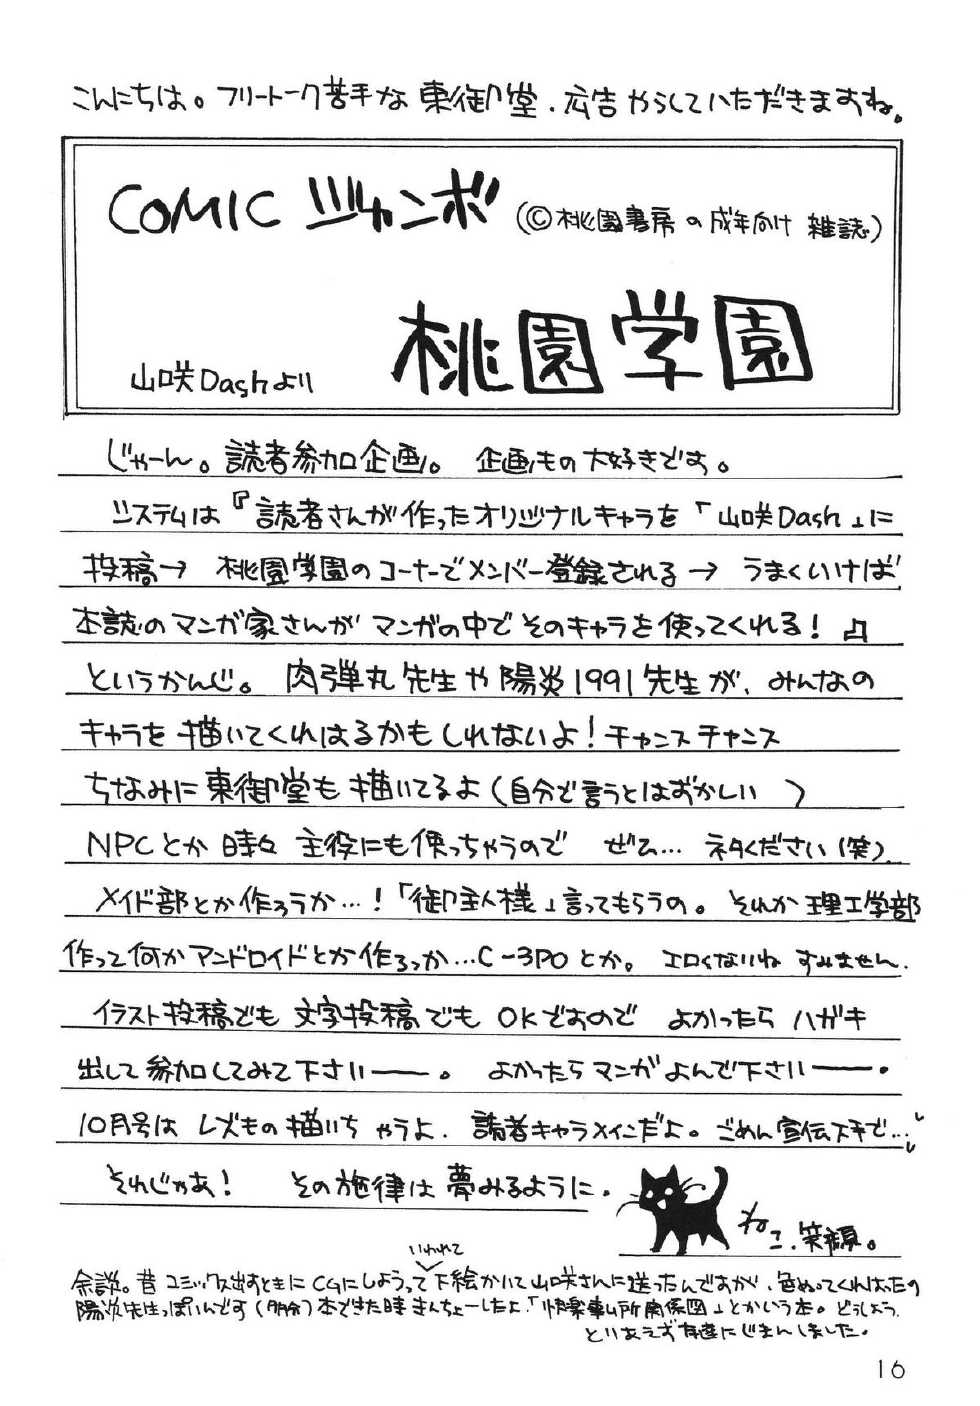 こんにちは。フリートーク苦手な東御堂.広告やらしていただきますね。
COMIC ジャンボ (©桃園書房の成年向け 雑誌)
山咲Dashより 桃園学園
じゃーん。読者参加企画。 企画もの大好きです。
システムは『読者さんが作ったオリジナルキャラを「山咲Dash」に
投稿→ 桃園学園のコーナーでメンバー登録される→ うまくいけば
本誌のマンガ家さんが マンガの中でそのキャラを使ってくれる!』
というかんじ。 肉弾丸先生や陽炎1991先生が、みんなの
キャラを描いてくれはるかもしれないよ!チャンスチャンス
ちなみに東御堂も描いてるよ(自分で言うとはずかしい )
NPCとか時々 主役にも使っちゃうので ぜひ… ネタください(笑)
メイド部とか作ろうか…!「御主人様」言ってもらうの。それか理工学部
作って何かアンドロイドとか作るっか…C-3POとか。エロくないね すみません.
イラスト投稿でも 文字投稿でも OKですので よかったらハガキ
出して参加してみて下さいー。 よかったらマンガよんで下さいー.
10月号は レズもの描いちゃうよ. 読者キャラメインだよ。ごめん宣伝下手で…
それじゃあ! その旋律は夢みるように.
ねこ.笑顔。
余談。昔 コミックス出すときに CGにしようっていわれて下絵かいて山咲さんに送ったんですが.色ぬってくれはったの
陽炎先生っぽいんです(多分)本できた時きんちょーしたよ.「快楽事ム所関係図」とかいう本。どうしよう.
とりあえず友達にじまんしました.
16